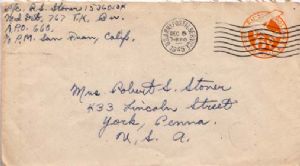 Pfc. R. S. Stoner
Med. Det., 767 T.K. Bn.
A.P.O. 660
% P.M. San Fran, Calif.
U.S. ARMY POSTAL SERVICE
DEC 8
1945
Mrs Robert S. Stoner
533 Lincoln Street
York, Penna.
U. S. A.